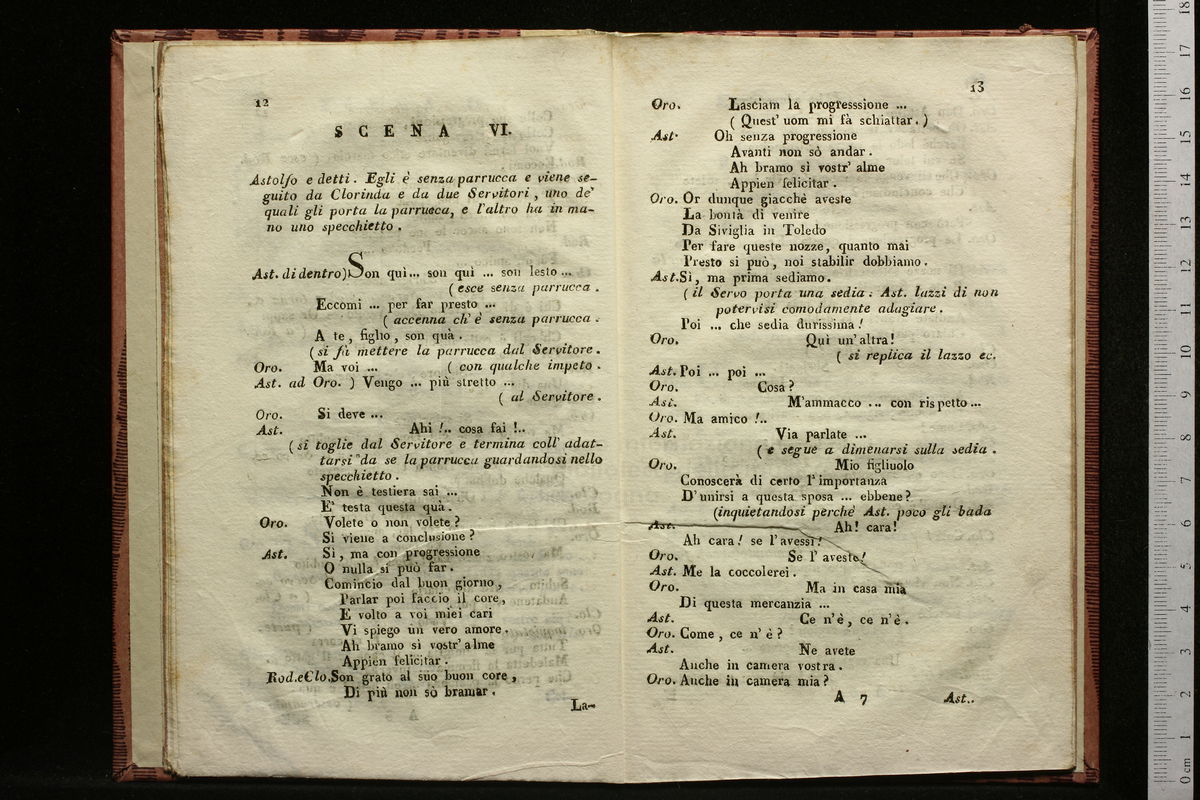 12
SCENA VI.
Astolfo e detti. Egli è senza parrucca e viene se-
guito da Clorinda e da due Servitori, uno de'
quali gli porta la parrucca, e l'altro ha in ma-
no uno specchietto.
Ast. di dentro) Son qui... son quì ... son lesto ...
( esce senza parrucca .
Eccomi ... per far presto ...
( accenna ch' è senza parrucca .
A te, figlio, son quà.
( si fà mettere la parrucca dal Servitore .
Oro. Ma voi ... ( con qualche impeto .
Ast. ad Oro. ) Vengo ... più stretto ...
( al Servitore .
Oro. Si deve ...
Ast. Ahi !.. cosa fai !..
( si toglie dal Servitore e termina coll' adat-
tarsi da se la parrucca guardandosi nello
specchietto .
Non è testiera sai ...
E' testa questa quà.
Oro. Volete o non volete?
Si viene a conclusione?
Ast. Sì, ma con progressione
O nulla si può far.
Comincio dal buon giorno,
Parlar poi faccio il core,
E volto a voi miei cari
Vi spiego un vero amore.
Ah bramo sì vostr' alme
Appien felicitar.
Rod.eClo. Son grato al suo buon core,
Di più non sò bramar.
La-
13
Oro. Lasciam la progresssione ...
( Quest' uom mi fà schiattar. )
Ast. Oh senza progressione
Avanti non sò andar.
Ah bramo sì vostr' alme
Appien felicitar.
Oro. Or dunque giacchè aveste
La bontà di venire
Da Siviglia in Toledo
Per fare queste nozze, quanto mai
Presto si può, noi stabilir dobbiamo.
Ast. Sì, ma prima sediamo.
( il Servo porta una sedia. Ast. lazzi di non
potervisi comodamente adagiare.
Poi ... che sedia durissima!
Oro. Quì un'altra!
( si replica il lazzo ec.
Ast. Poi ... poi ...
Oro. Cosa?
Ast. M'ammacco ... con rispetto...
Oro. Ma amico !..
Ast. Via parlate ...
( e segue a dimenarsi sulla sedia .
Oro. Mio figliuolo
Conoscerà di certo l'importanza
D'unirsi a questa sposa ... ebbene?
(inquietandosi perchè Ast. poco gli bada
Ast. Ah! cara!
Ah cara! se l'avessi!
Oro. Se l'aveste!
Ast. Me la coccolerei.
Oro. Ma in casa mia
Di questa mercanzia ...
Ast. Ce n'è, ce n'è.
Oro. Come, ce n'è?
Ast. Ne avete
Anche in camera vostra.
Oro. Anche in camera mia?
A 7 Ast..
18
17
16
15
14
13
12
11
10
9
8
7
6
5
4
3
2
1
0 cm